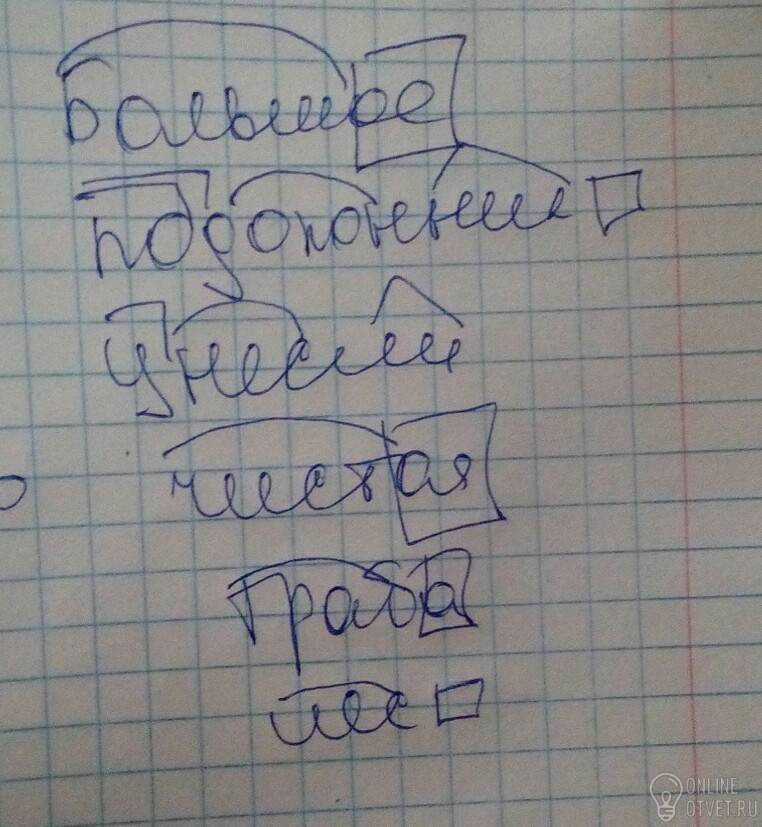 большое
подоконник
унесли
чистая
трава
лес
ONLINE
OTVET.RU